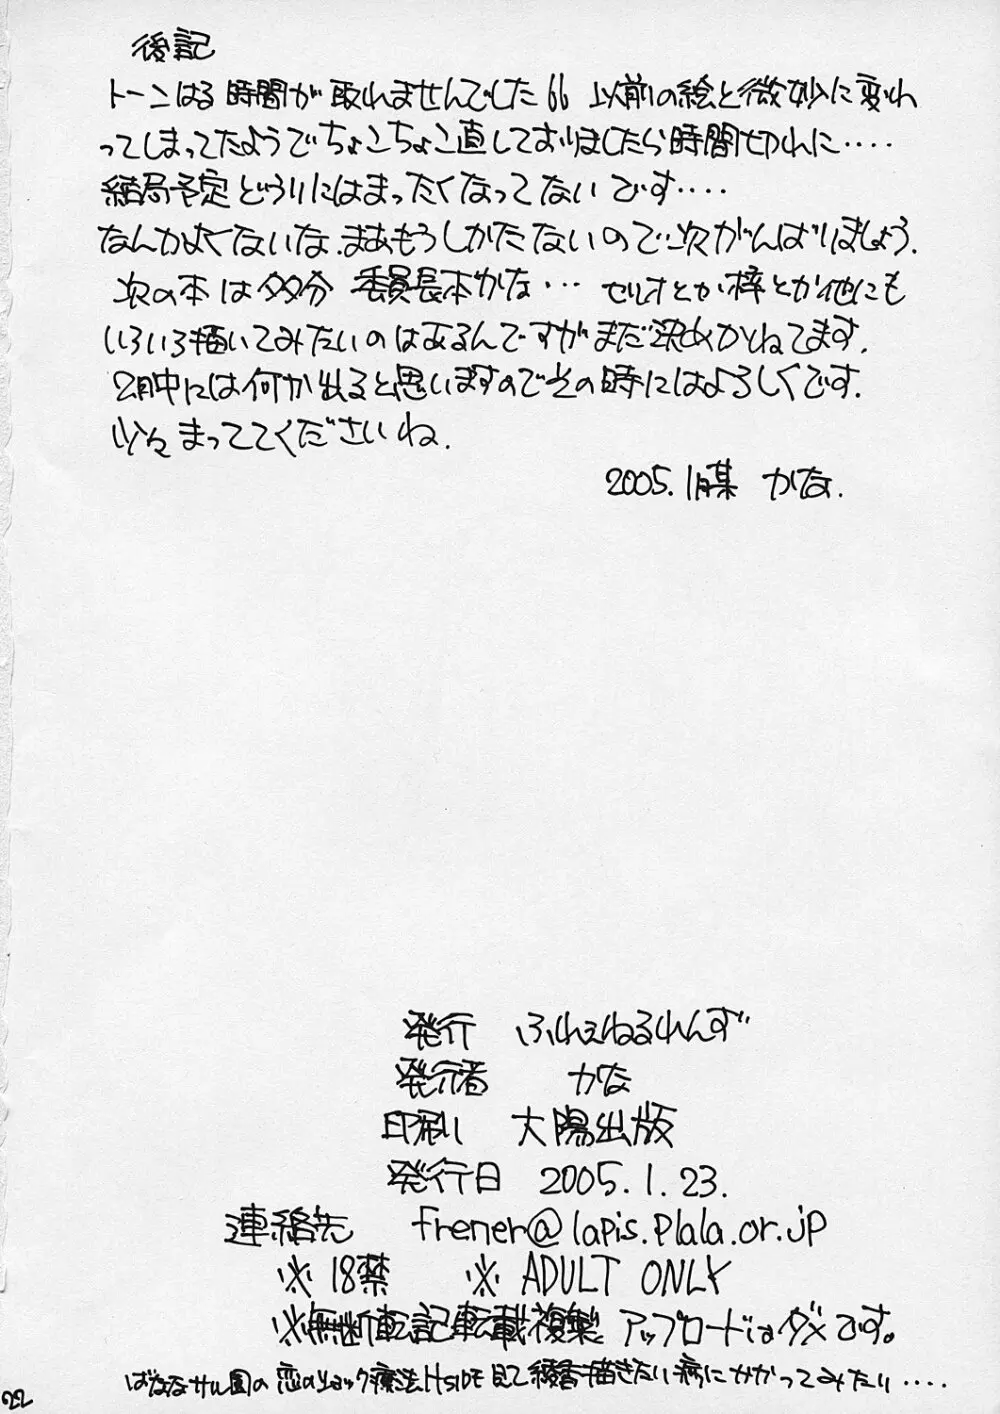 後記
トーンはる時間が取れませんでした66 以前の絵と微妙に変わ
ってしまってたようでちょこちょこ直しておりましたら時間切れに‥‥
結局予定どうりにはまったくなってないです‥‥
なんかよくないな.まあもうしかたないので次がんばりましょう.
次の本は多分 委員長本かな… セリオとか梓とか他にも
いろいろ描いてみたいのはあるんですがまだ決めかねてます.
2月中には何か出ると思いますのでその時にはよろしくです.
少々まっててくださいね.
2005.1月某 かな.
発行 ふれぇねるれんず
発行者 かな
印刷 大陽出版
発行日 2005.1.23.
連絡先 frener@lapis.plala.or.jp
※18禁 ※ADULT ONLY
※無断転記転載複製 アップロードはダメです。
ばななサル園の恋のショック療法Hsideを見て綾香描きたい病にかかってみたり‥‥
22